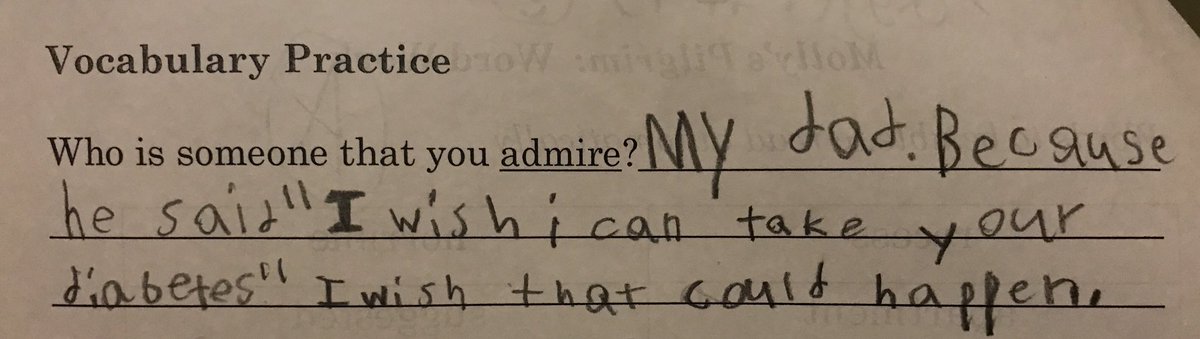 Vocabulary Practice
Who is someone that you admire? My dad. Because
he said "I wish i can take your
diabetes" I wish that could happen.